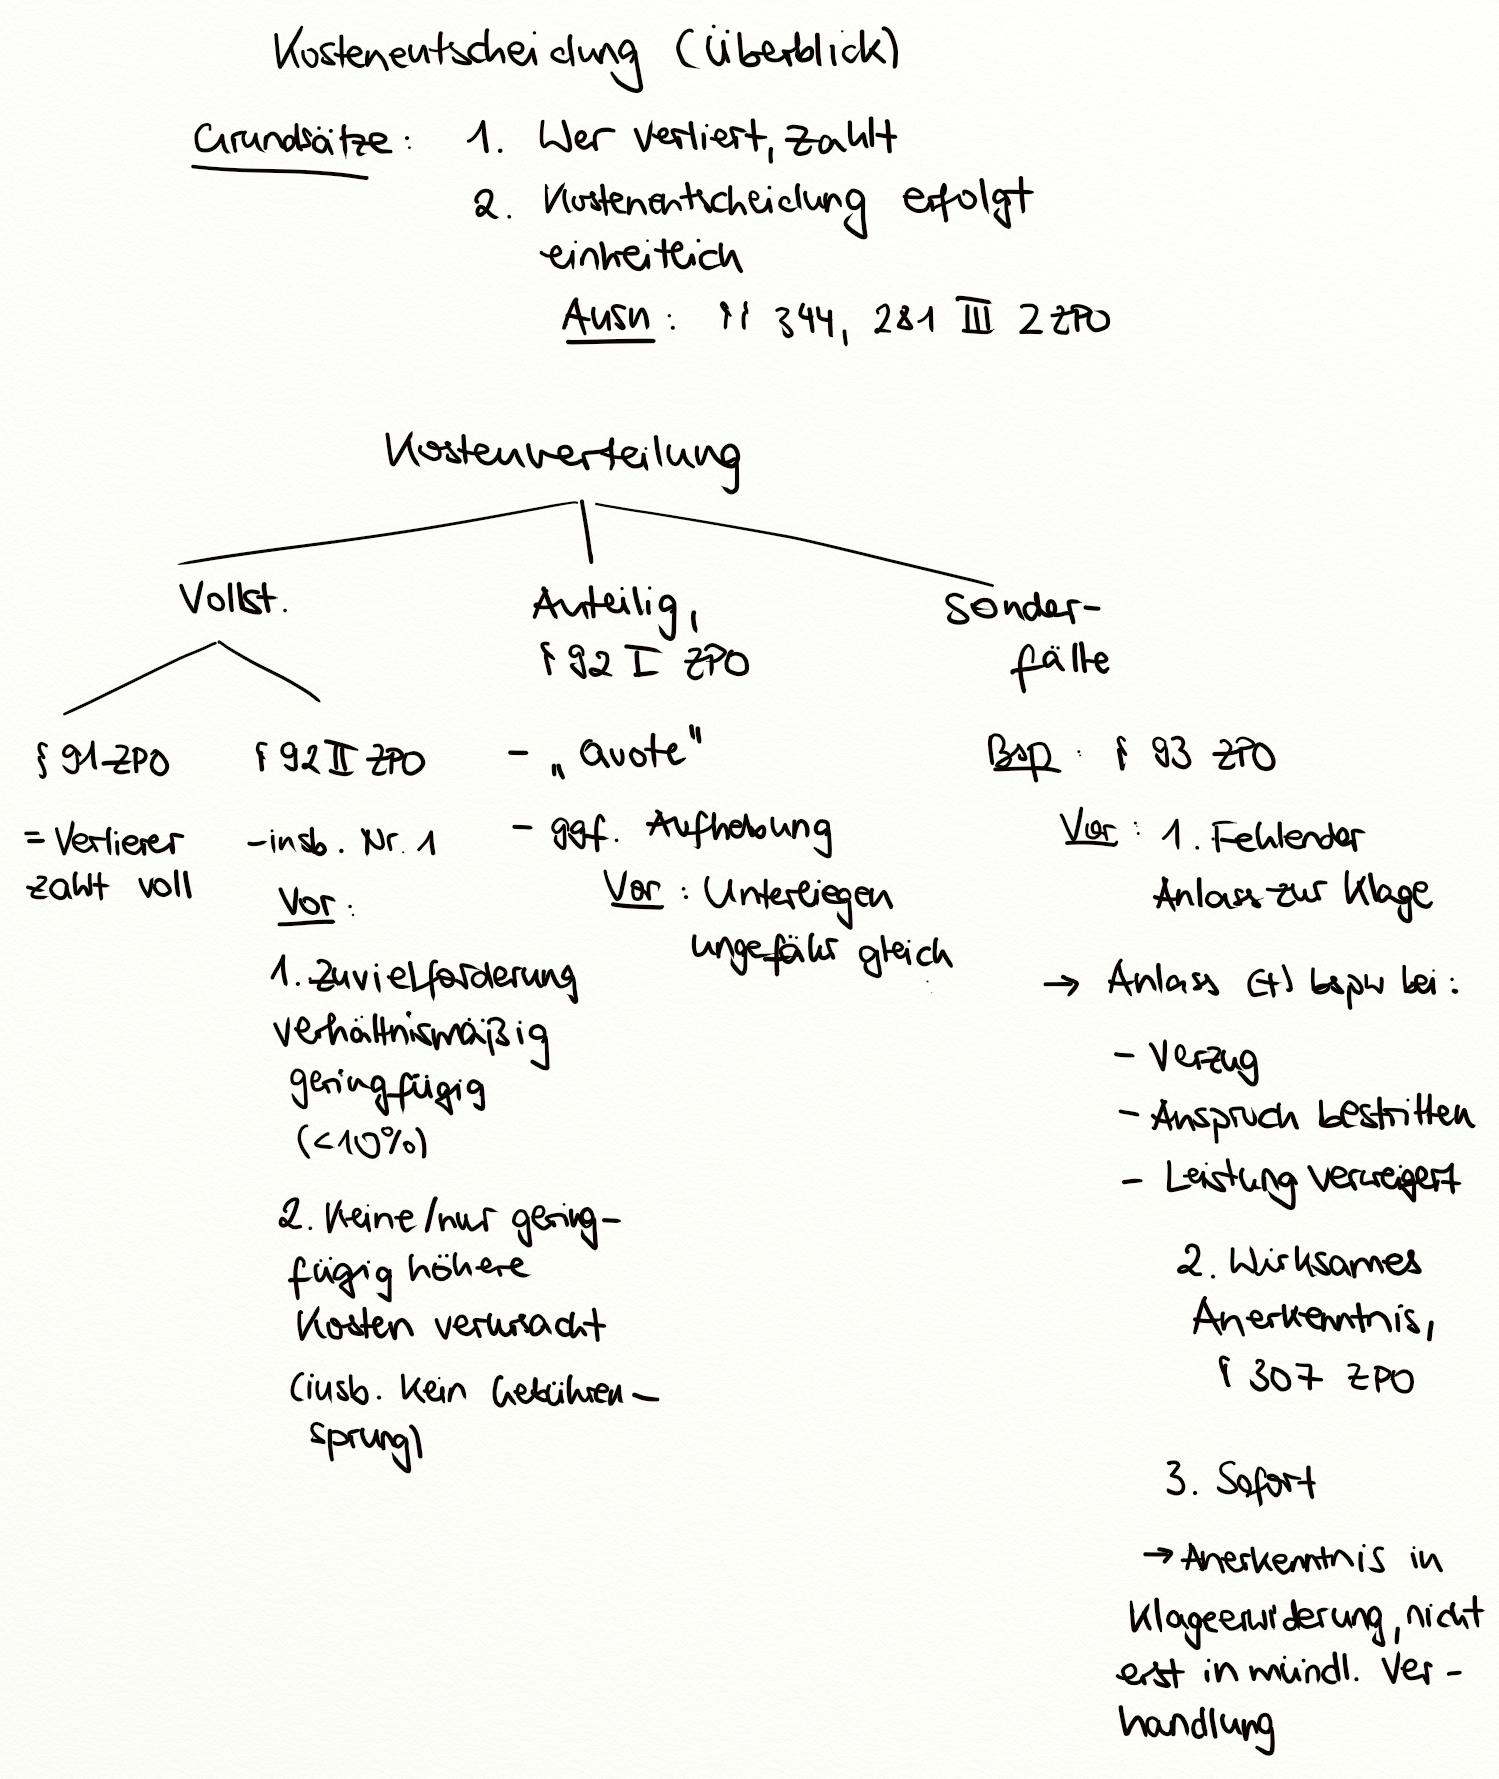 Kostenentscheidung (Überblick)
Grundsätze: 1. Wer verliert, zahlt
2. Kostenentscheidung erfolgt
einheitlich
Ausn: §§ 344, 281 III 2 ZPO
Kostenverteilung
Vollst.
§ 91 ZPO
= Verlierer
zahlt voll
§ 92 II ZPO
- insb. Nr. 1
Vor:
1. Zuvielforderung
verhältnismäßig
geringfügig
(<10%)
2. Keine/nur gering-
fügig höhere
Kosten verursacht
(insb. kein Gebühren-
sprung)
Anteilig,
§ 92 I ZPO
- „Quote"
- ggf. Aufhebung
Vor: Unterliegen
ungefähr gleich
Sonder-
fälle
Bsp: § 93 ZPO
Vor: 1. Fehlender
Anlass zur Klage
→ Anlass (+) bspw bei:
- Verzug
- Anspruch bestritten
- Leistung verweigert
2. Wirksames
Anerkenntnis,
§ 307 ZPO
3. Sofort
→ Anerkenntnis in
Klageerwiderung, nicht
erst in mündl. Ver-
handlung